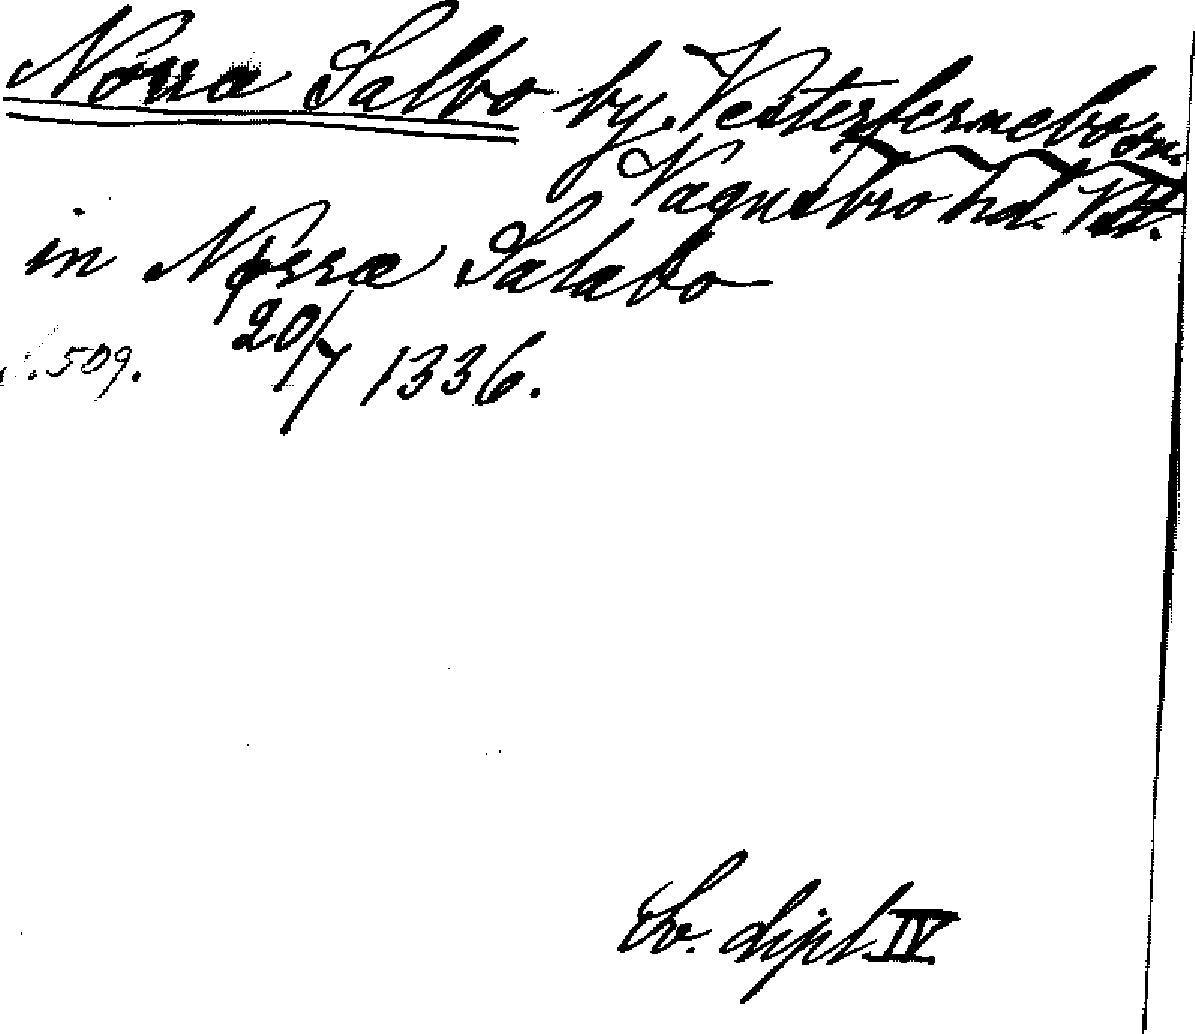 Norra Salbo by. Vesterfernebo sn.
Vagnsbro hd. Vstl.
in Norra Salabo
20/7 1336.
s. 509.
Sv. dipl. IV.